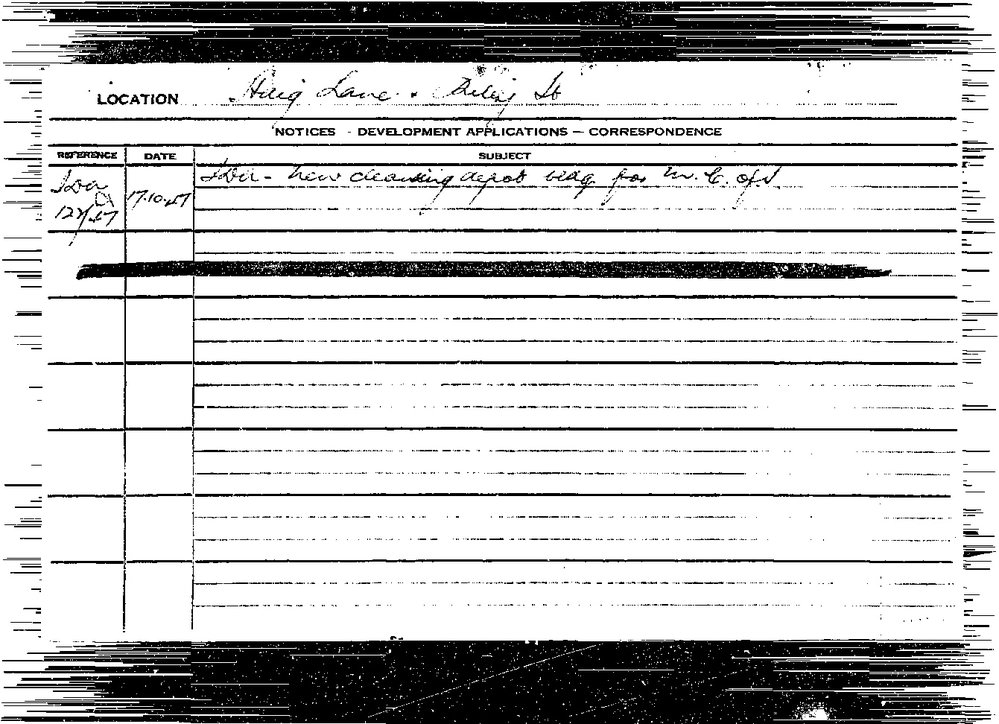 LOCATION Haig Lane &
NOTICES - DEVELOPMENT APPLICATIONS — CORRESPONDENCE
REFERENCE DATE SUBJECT
17.10.67 - New cleansing depot bldg for M.C. of